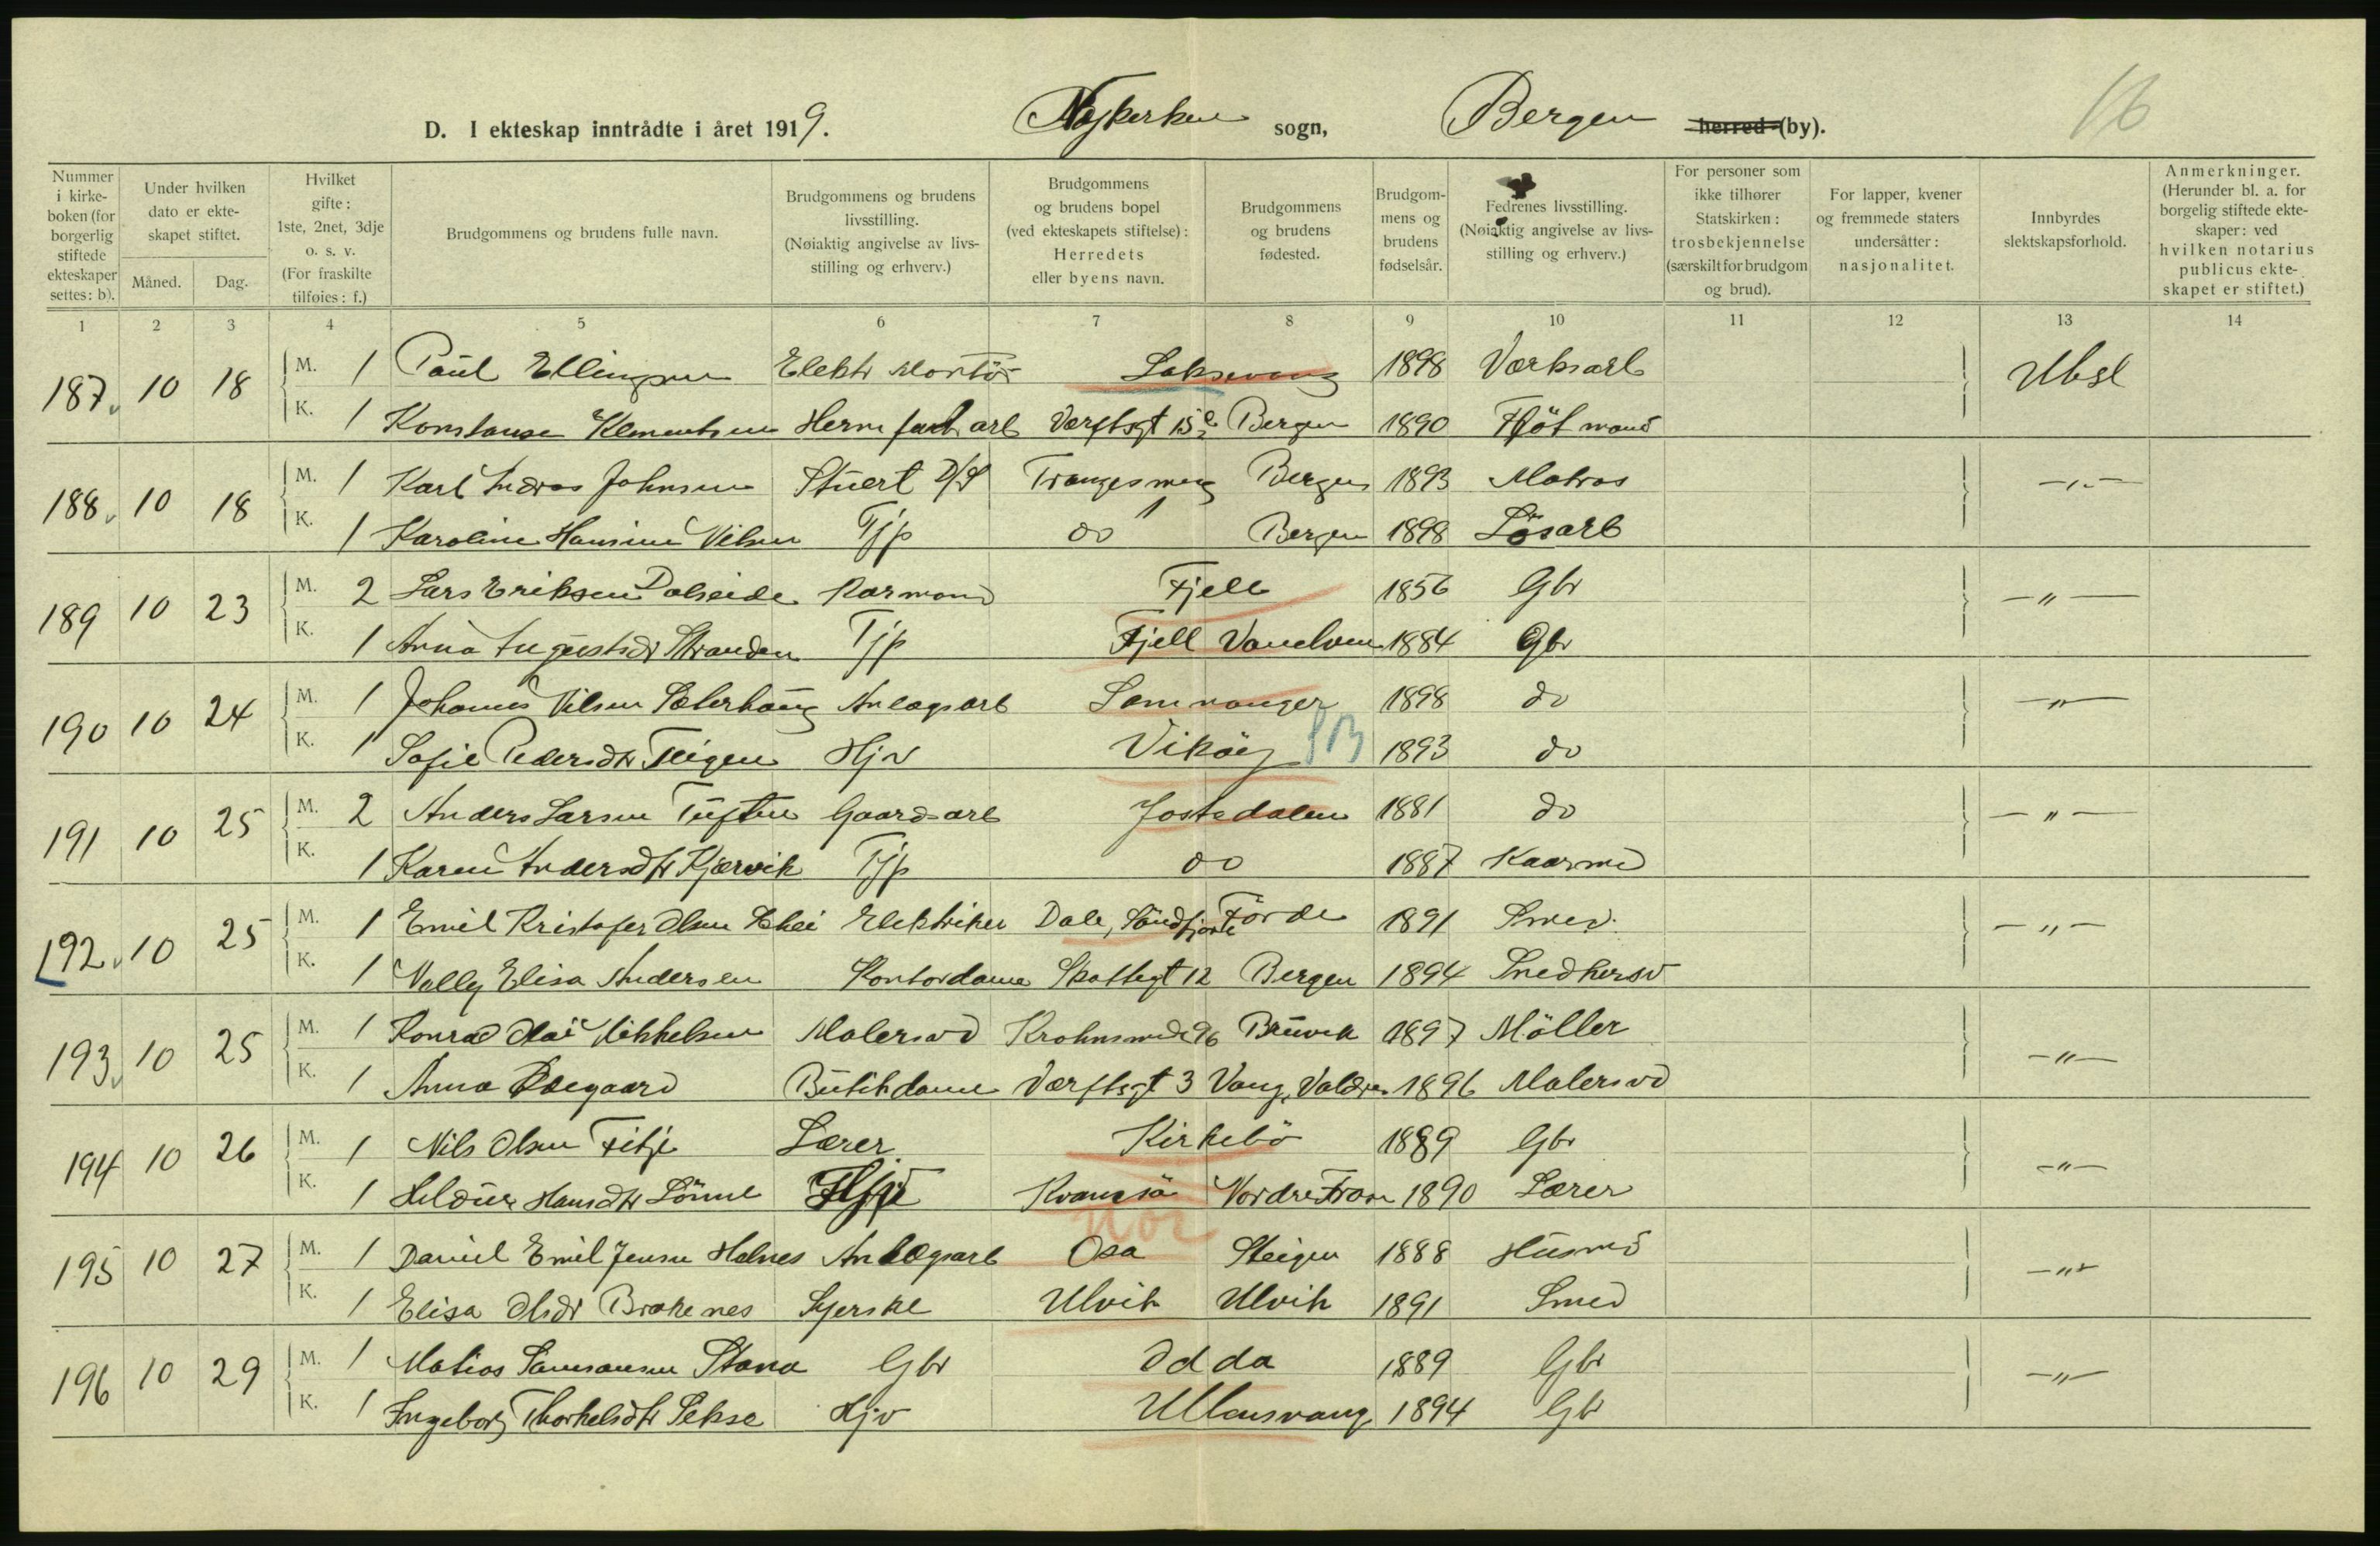 D. I ekteskap inntrådte i året 1919. Nykirken sogn, Bergen herred (by). 16
Nummer i kirkeboken (for borgerlig stiftede ekteskaper settes: b).
Under hvilken dato er ekteskapet stiftet.
Måned. Dag.
Hvilket gifte: 1ste, 2net, 3dje o. s. v. (For fraskilte tilføies: f.)
Brudgommens og brudens fulle navn.
Brudgommens og brudens livsstilling. (Nøiaktig angivelse av livsstilling og erhverv.)
Brudgommens og brudens bopel (ved ekteskapets stiftelse): Herredets eller byens navn.
Brudgommens og brudens fødested.
Brudgommens og brudens fødselsår.
Fedrenes livsstilling. (Nøiaktig angivelse av livsstilling og erhverv.)
For personer som ikke tilhører Statskirken: trosbekjennelse (særskilt for brudgom og brud).
For lapper, kvener og fremmede staters undersåtter: nasjonalitet.
Innbyrdes slektskapsforhold.
Anmerkninger. (Herunder bl. a. for borgelig stiftede ekteskaper: ved hvilken notarius publicus ekteskapet er stiftet.)
1 2 3 4 5 6 7 8 9 10 11 12 13 14
187 10 18 M. 1 Paul Ellingsen Elektr Montör Laksevaag 1898 Værksarb Ubsl
K. 1 Konstanse Klementsen Herm fabr arb Værftsgt 15 Bergen 1890 Fløtmand
188 10 18 M. 1 Karl Andreas Johnsen Stuert D/S Trangesmug Bergen 1893 Matros -„-
K. 1 Karoline Hansine Nilsen Tjp do Bergen 1898 Lösarb
189 10 23 M. 2 Lars Eriksen Dalseide Kormand Fjell 1856 Gbr -„-
K. 1 Anna Augustsdtr Stranden Tjp Fjell Vanelven 1884 Gbr
190 10 24 M. 1 Johannes Nilsen Sæterhaug Anlægsarb Samnanger 1898 do -„-
K. 1 Sofie Pedersdtr Teigen Hjv Viköy SB 1893 do
191 10 25 M. 2 Anders Larsen Tuften Gaardsarb Jostedalen 1881 do -„-
K. 1 Karen Andersdtr Kjærvik Tjp do 1887 Kaarmd
192 10 25 M. 1 Emil Kristofer Olsen Elektriker Dale, Söndfjord Förde 1891 Smed -„-
K. 1 Vally Elisa Andersen Kontordame Skottegt 12 Bergen 1894 Snedkersv
193 10 25 M. 1 Konrad Olai Mikkelsen Malersvd Krohnsmde 96 Bruvik 1897 Möller -„-
K. 1 Anna Ødegaard Butikdame Værftsgt 3 Vang, Valdres 1896 Malersvd
194 10 26 M. 1 Nils Olsen Fitje Lærer Kirkebö 1889 Gbr -„-
K. 1 Hildur Hansdtr Lönne Hjv Kvamsö Nordre Fron 1890 Lærer
Hor
195 10 27 M. 1 Daniel Emil Jensen Helnes Anlægsarb Osa Steigen 1888 Husmd -„-
K. 1 Elisa Olsdr Brakenes Syerske Ulvik Ulvik 1891 Smed
196 10 29 M. 1 Matias Samsonsen Stana Gbr Odda 1889 Gbr -„-
K. 1 Ingeborg Thorkelsdtr Sekse Hjv Ullensvang 1894 Gbr